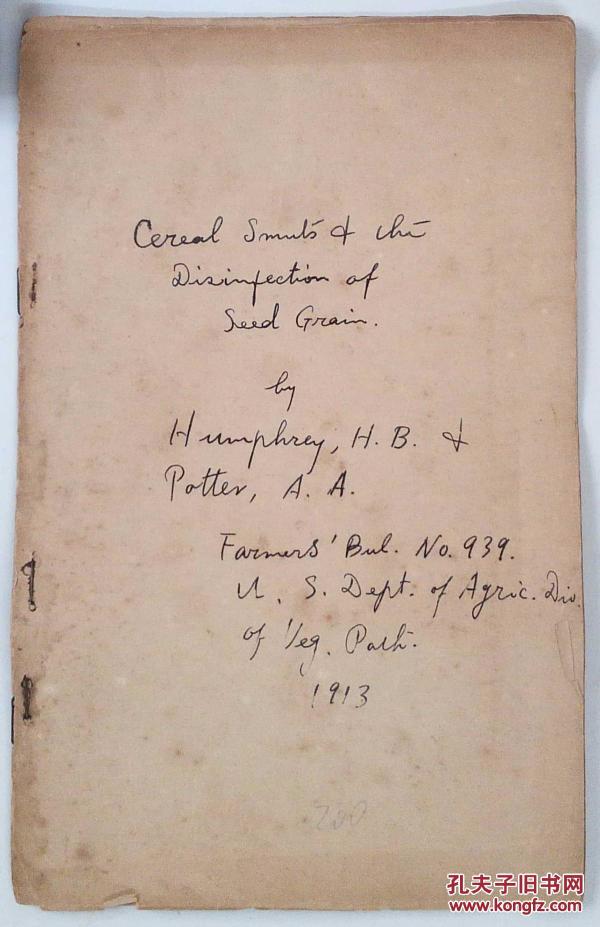 Cereal Smuts & the
Disinfection of
Seed Grain.
by
Humphrey, H. B. &
Potter, A. A.
Farmers' Bul. No. 939.
U. S. Dept. of Agric. Div.
of Veg. Path.
1913
200
孔夫子旧书网
www.kongfz.com